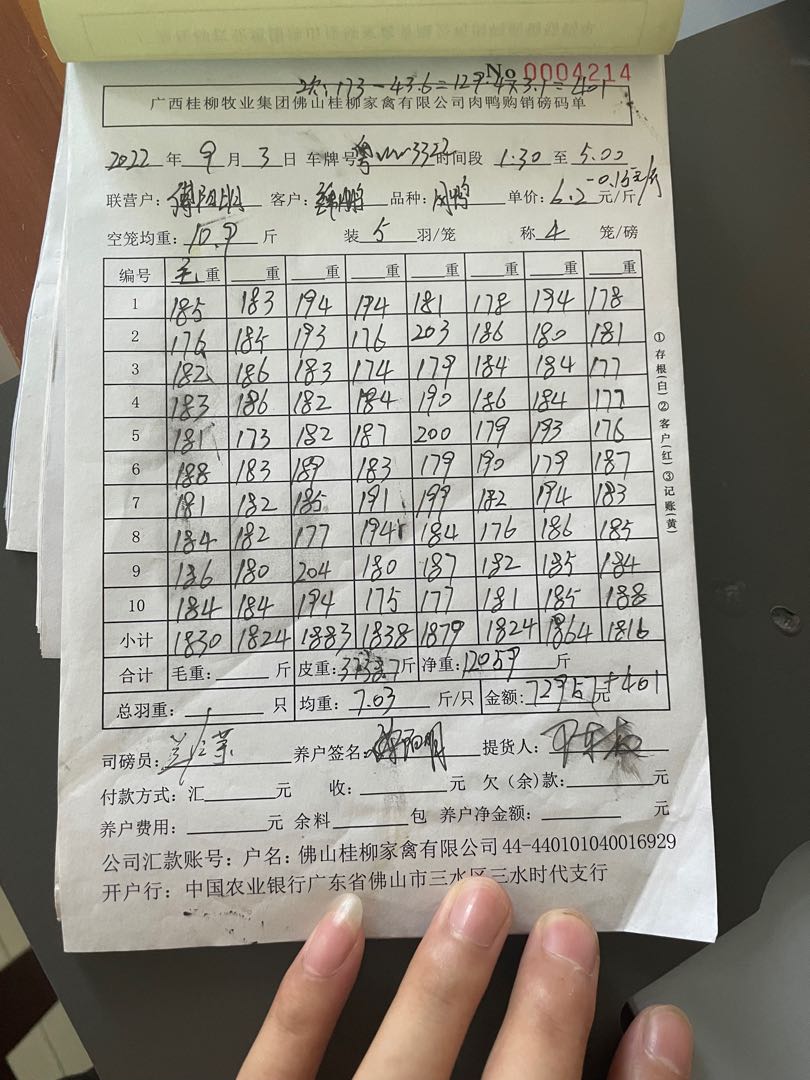 No 0004214
次: 173-43.6=129.4×3.1=401
广西桂柳牧业集团佛山桂柳家禽有限公司肉鸭购销磅码单
2022 年 9 月 3 日 车牌号 粤 3322 时间段 1.30 至 5.00
联营户: 客户: 品种: 肉鸭 单价: 6.2 -0.15元/斤 元/斤
空笼均重: 10.9 斤 装 5 羽/笼 称 4 笼/磅
编号 毛重 重 重 重 重 重 重 重
1 185 183 194 194 181 178 194 178
2 176 185 193 176 203 186 180 181
3 182 186 183 174 179 184 184 177
4 183 186 182 184 190 186 184 177
5 181 173 182 187 200 179 193 176
6 188 183 189 183 179 190 179 187
7 181 182 185 191 199 182 194 183
8 184 182 177 194 184 176 186 185
9 186 180 204 180 187 182 185 184
10 184 184 194 175 177 181 185 188
小计 1830 1824 1883 1838 1879 1824 1864 1816
合计 毛重: 斤 皮重: 斤 净重: 12059 斤
总羽重: 只 均重: 7.03 斤/只 金额: 72957+401 元
司磅员: 养户签名: 提货人:
付款方式: 汇 元 收: 元 欠(余)款: 元
养户费用: 元 余料 包 养户净金额: 元
公司汇款账号: 户名: 佛山桂柳家禽有限公司 44-440101040016929
开户行: 中国农业银行广东省佛山市三水区三水时代支行
①存根(白)②客户(红)③记账(黄)